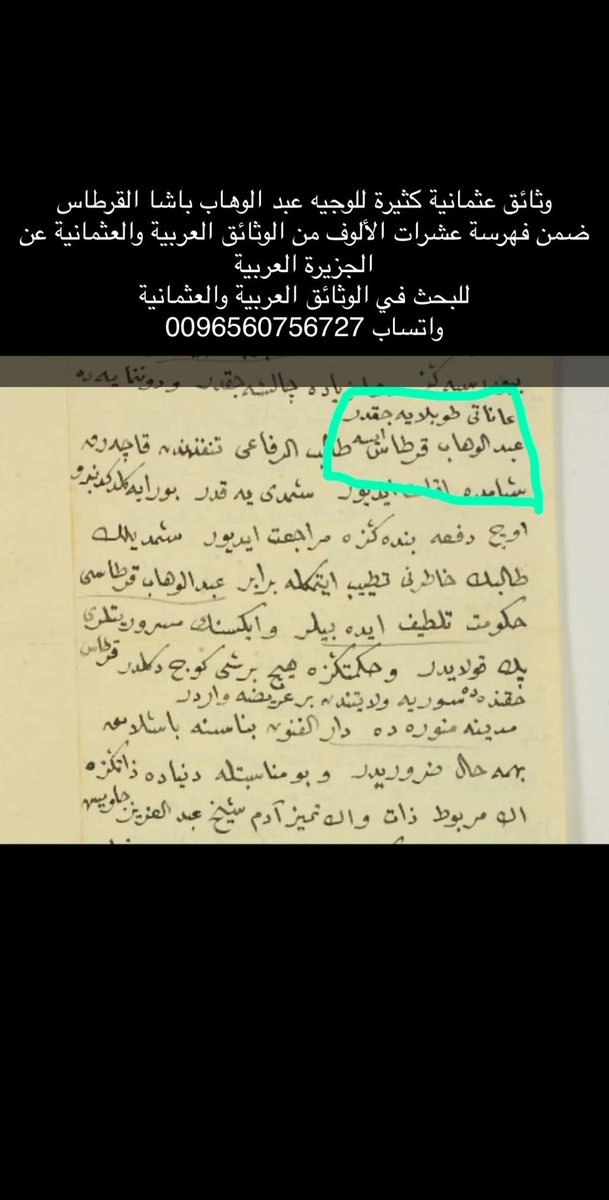 وثائق عثمانية كثيرة للوجيه عبد الوهاب باشا القرطاس
ضمن فهرسة عشرات الألوف من الوثائق العربية والعثمانية عن
الجزيرة العربية
للبحث في الوثائق العربية والعثمانية
واتساب 0096560756727
زياده چالشه جقدر ودوننمايه ده
عاناتی طوپلايه جقدر
عبدالوهاب قرطاس ايسه طالب الرفاعی تنفندن قاچه رق
شامده اقامت ايديور شمدی يه قدر بورايه كلدكدنبرو
اوچ دفعه بنده كزه مراجعت ايديور شمديلك
طالبك خاطرنی تطييب ايتمكله برابر عبدالوهاب قرطاسی
حكومت تلطيف ايده بيلر وايكسنك مسروريتلری
پك قولايدر وحكمتكزه هيچ برشی كوچ دكلدر قرطاس
حقنده سوريه ولايتندن بر عريضه واردر
مدينه منوره ده دار الفنون بناسنه باشلامق
بهمه حال ضروريدر وبو مناسبتله دنياده ذاتكزه
الك مربوط ذات والك تميز آدم شيخ عبد العزيز چاويش